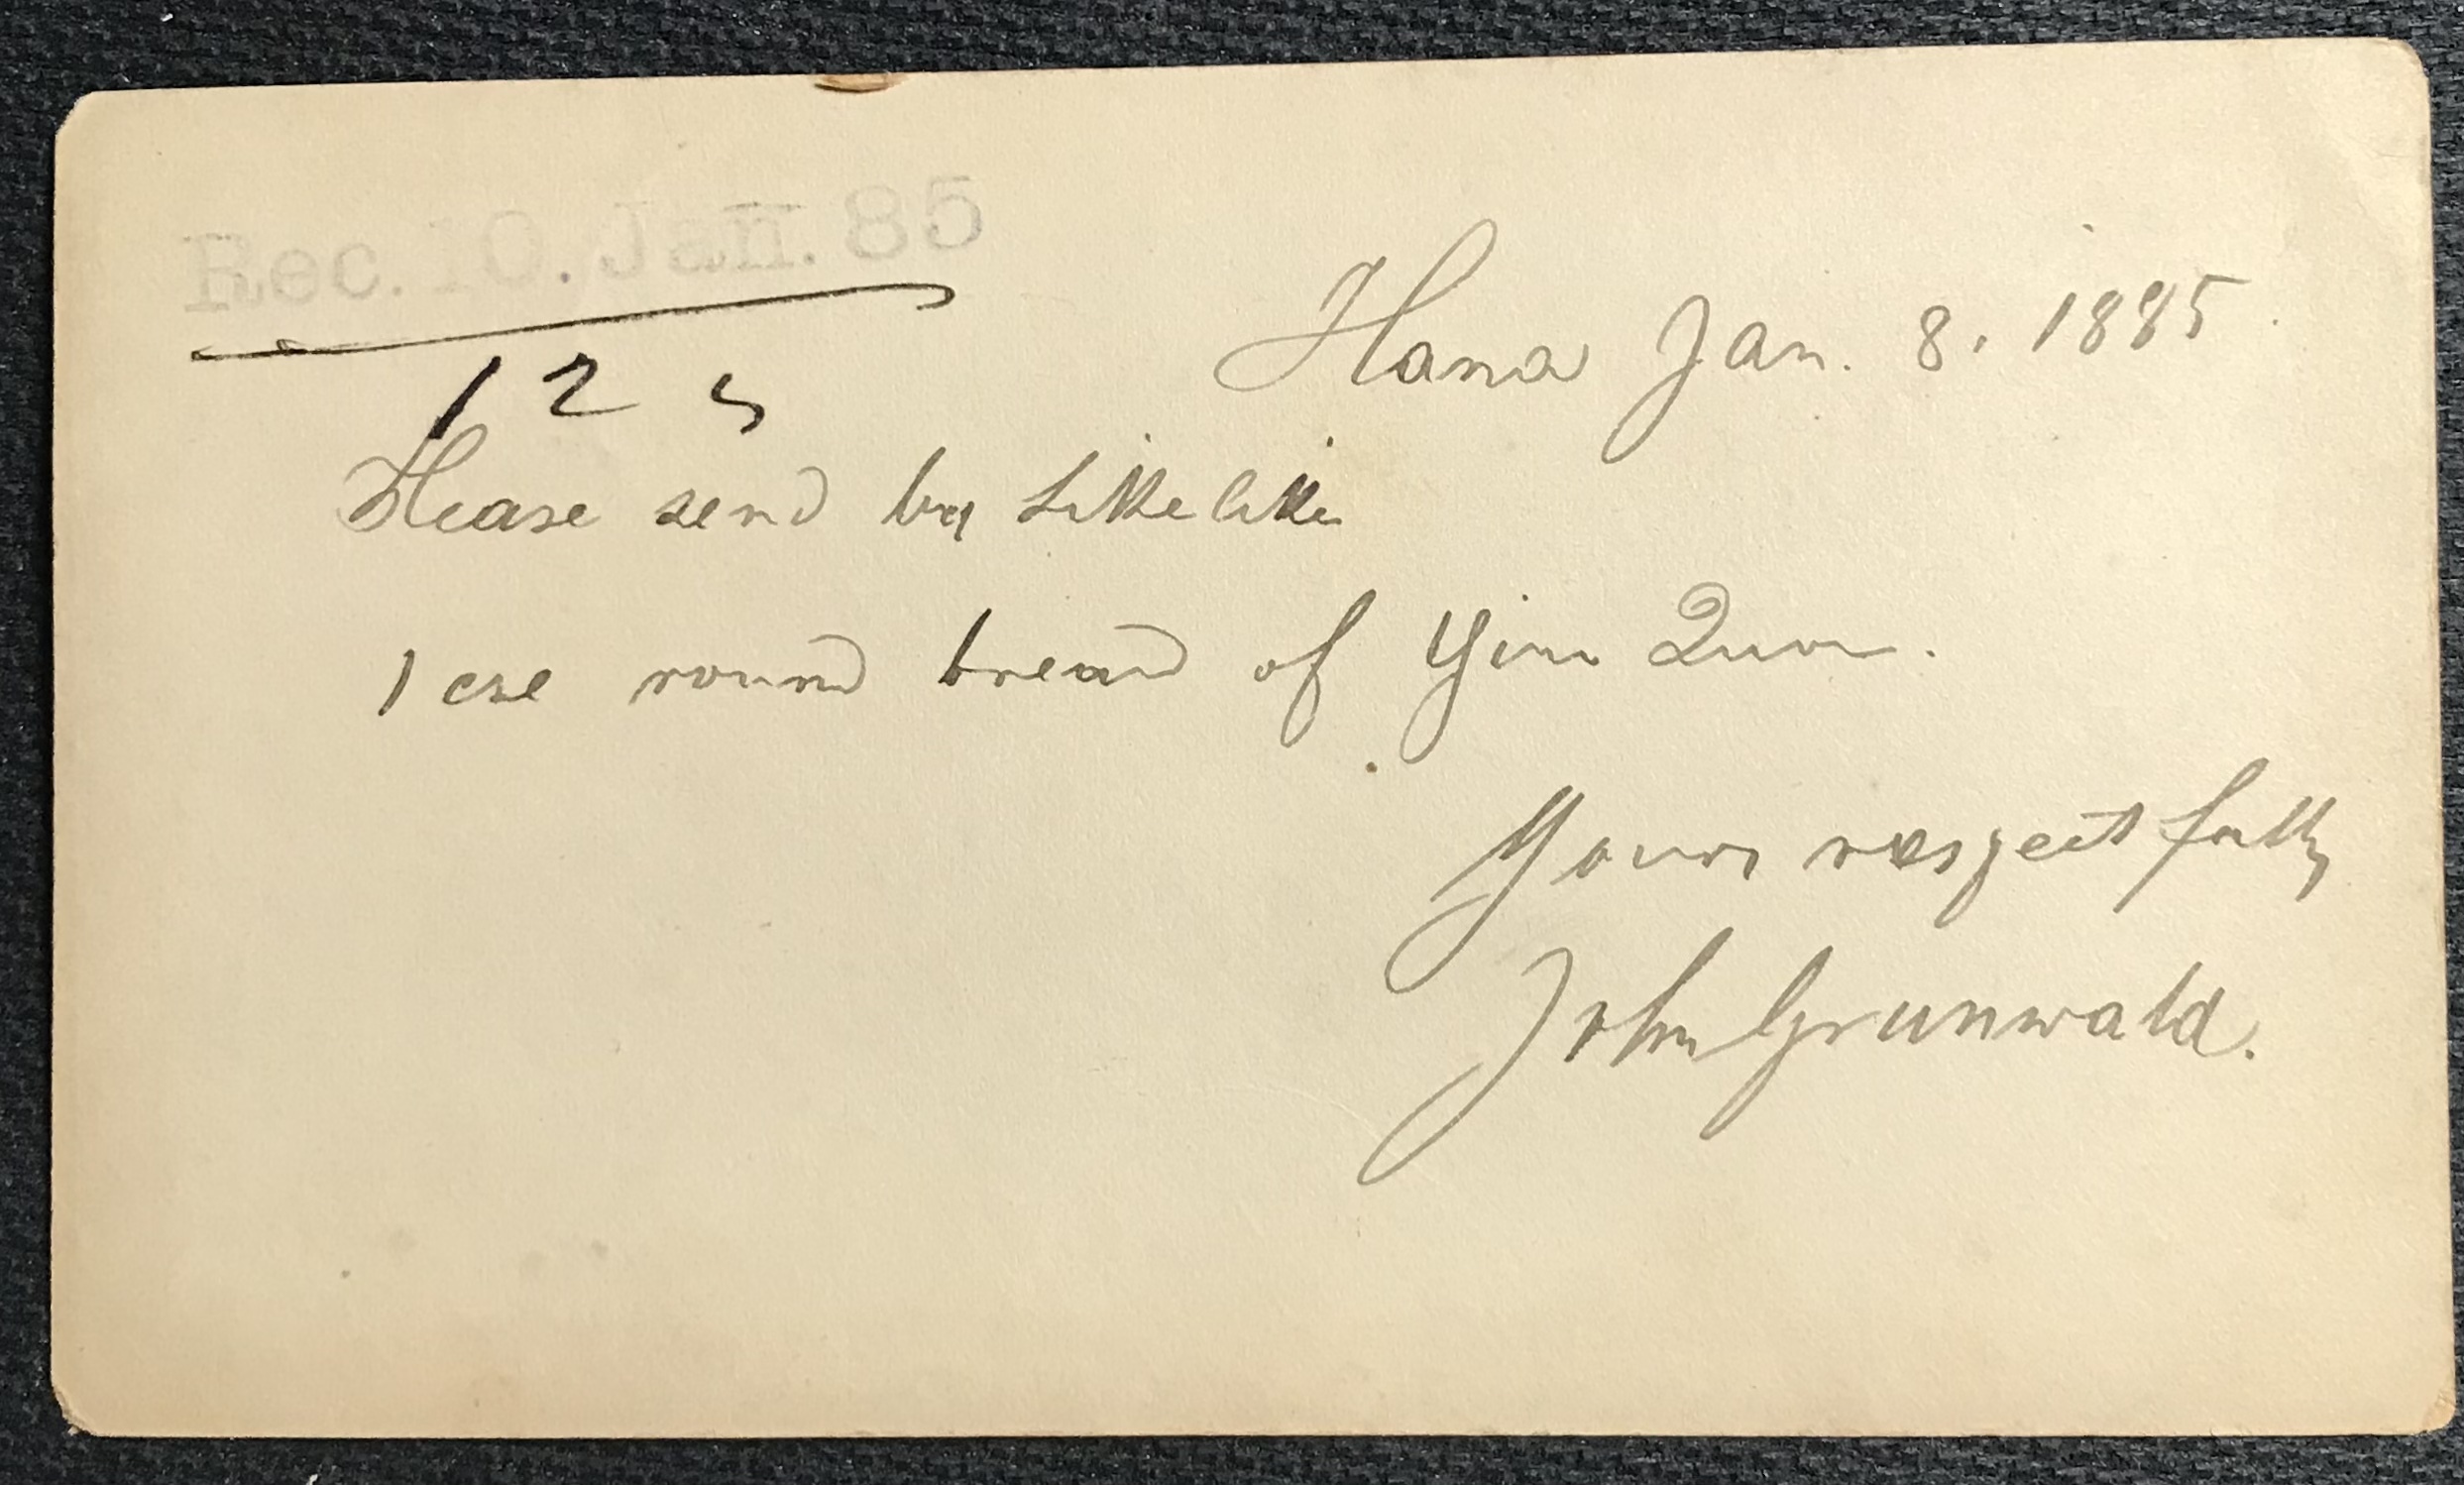 Rec. 10. Jan. 85
Hana Jan. 8. 1885.
12 5
Please send by Likelike
1 cse round bread of Yim Quon.
Yours respectfully
John Grunwald.